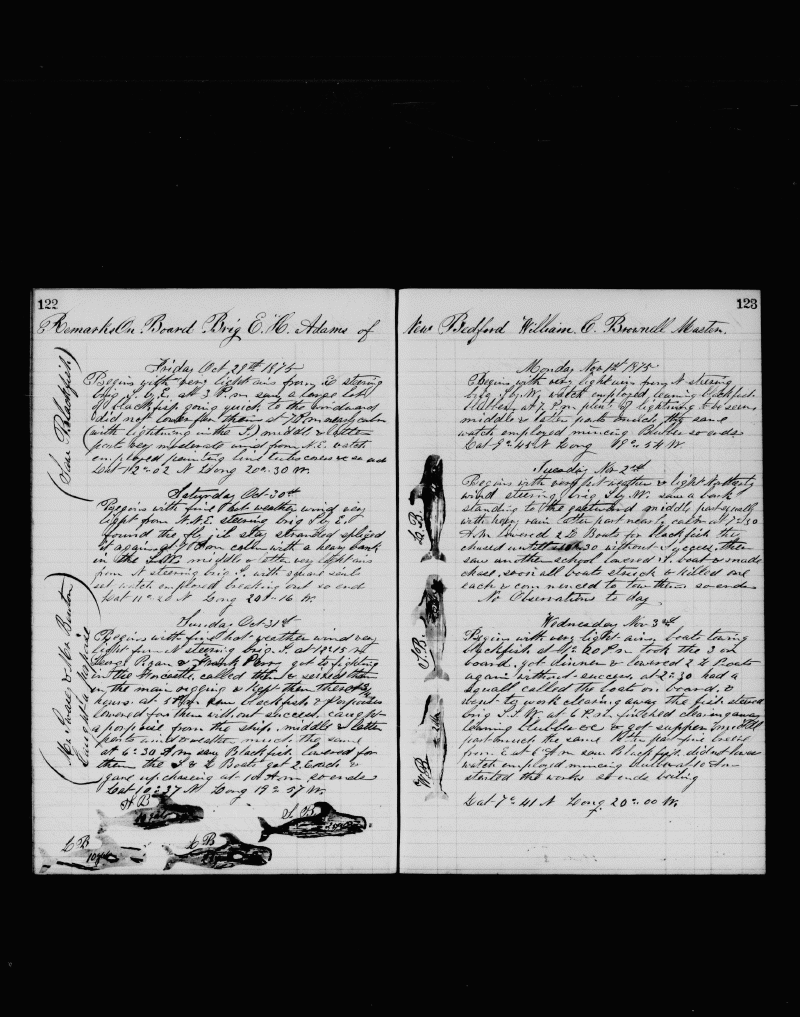 122
Remarks On Board Brig E. H. Adams of
(Saw Blackfish)
Friday Oct 29th 1875
Begins with very light airs from E steering
brig S. by E. at 3 P.m saw a large lot
of blackfish going quick to the windward
did not lower for them at 7 P.m nearly calm
(with lightning in the S) middle & latter
parts very moderate wind from N.E. watch
employed painting line tubs so ends
Lat 12°.02 N Long 20°.30 W.
Saturday Oct 30th
Begins with fine hot weather wind very
light from N.N.E. steering brig S. by E.
found the fly jib stay stranded spliced
it again at calm with a heavy bank
in the middle & latter very light airs
from N steering brig S. with square sails
set watch employed breaking out so ends
Lat 11°.20 N Long 20°.16 W.
(Mr. Chase & Mr. Bunton
caught a porpoise)
Sunday Oct 31st
Begins with fine hot weather wind very
light from N steering brig. S. at 10.15
George Ryan & Frank got to fighting
in the Forcastle, called them & seized them
in the main rigging & kept them there
hours. at 5 P.m. saw blackfish & Porpoises
lowered for them without success, caught
a porpoise from the ship. middle & latter
parts and weather much the same
at 6°.30 A.m saw Blackfish lowered for
them the S & L Boats got 2 each &
gave up chasing at 10 A.m so ends
Lat 10°.37 N Long 19°.57 W.
S B
L B
L B
123
New Bedford William C. Brownell Master.
Monday Nov 1st 1875
Begins with very light airs from N steering
brig S. by W. watch employed leaning blackfish
blubber, at 7 P.m plenty of lightning to be seen
middle & latter parts much the same
watch employed mincing Blubber so ends
Lat 9°.45 N Long 19°.54 W.
L.B
Tuesday Nov 2nd
Begins with very hot weather & light Northerly
wind steering brig S by W. saw a bark
standing to the eastward middle part squally
with heavy rain latter part nearly calm at 7°.30
A.m lowered 2 Boats for blackfish they
chased untill 10.30 without success, then
saw another school lowered S. boat & made
chase, soon all boats struck & killed one
each & commenced to tow them so ends
No Observations to day
S.B
W.B
Wednesday Nov. 3rd
Begins with very light airs, boats towing
blackfish at 1°.20 P.m took the 3 on
board. got dinner & lowered 2 Boats
again without success, at 2°.30 had a
squall called the boats on board, &
went to work clearing away the fish steered
brig S.S.W. at 6 P.m finished clearing away
leaning blubber &c & got supper middle
part much the same latter part fine breeze
from E at 6 A.m saw Blackfish did not lower
watch employed mincing blubber at 10 A.m
started the works so ends boiling
Lat 7°.41 N Long 20°.00 W.